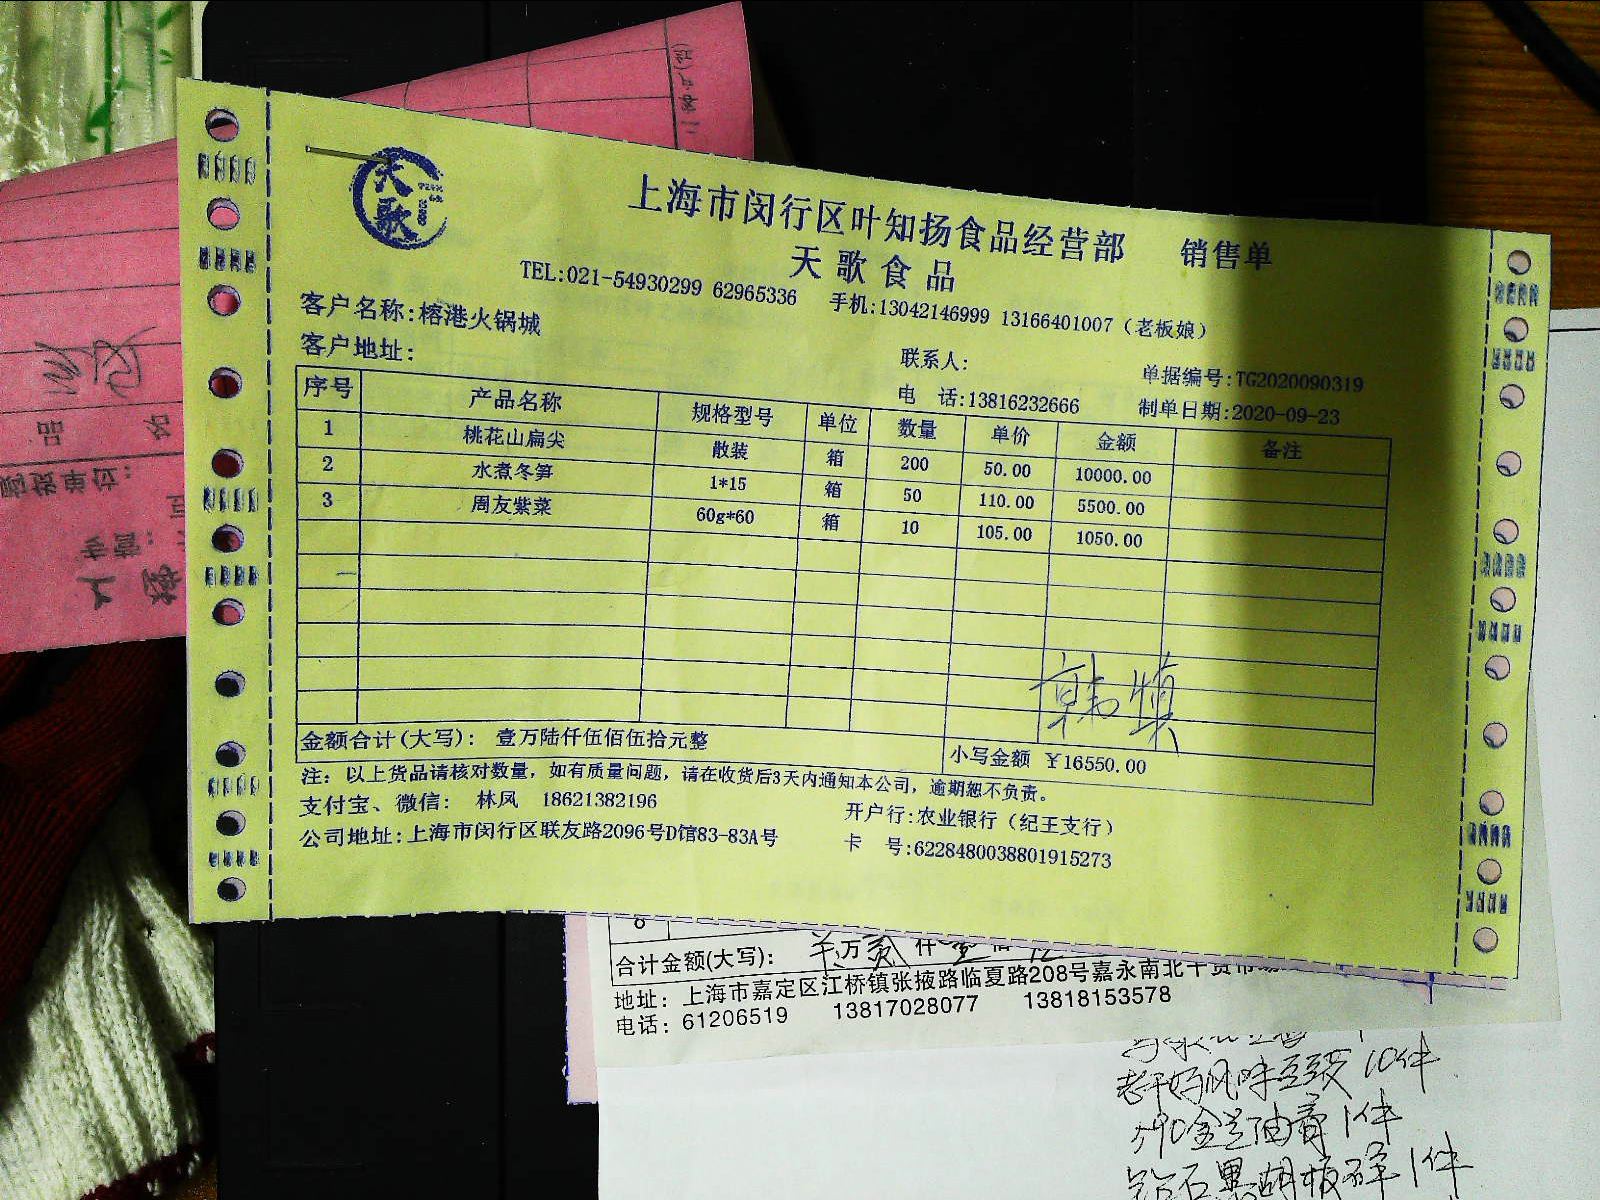 天歌
上海市闵行区叶知扬食品经营部 销售单
天歌食品
TEL:021-54930299 62965336 手机:13042146999 13166401007（老板娘）
客户名称:榕港火锅城
客户地址: 联系人: 单据编号:TG2020090319
电 话:13816232666 制单日期:2020-09-23
序号 产品名称 规格型号 单位 数量 单价 金额 备注
1 桃花山扁尖 散装 箱 200 50.00 10000.00
2 水煮冬笋 1*15 箱 50 110.00 5500.00
3 周友紫菜 60g*60 箱 10 105.00 1050.00
金额合计(大写): 壹万陆仟伍佰伍拾元整 小写金额 ￥16550.00
注: 以上货品请核对数量，如有质量问题，请在收货后3天内通知本公司，逾期恕不负责。
支付宝、微信: 林凤 18621382196 开户行:农业银行（纪王支行）
公司地址:上海市闵行区联友路2096号D馆83-83A号 卡 号:6228480038801915273
8
合计金额(大写): 万 仟
地址: 上海市嘉定区江桥镇张掖路临夏路208号嘉永南北干货市
电话: 61206519 13817028077 13818153578
老干妈风味豆豉 10件
1件
黑胡椒碎 1件
品名
购货单位:
专营:
上